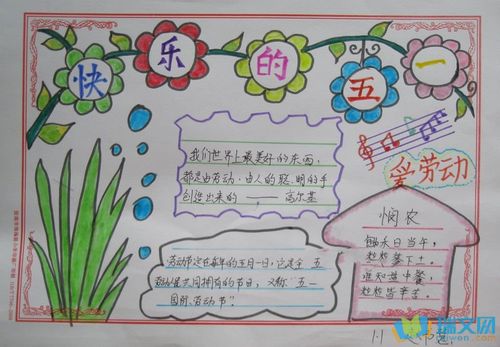 快乐的五一
爱劳动
我们世界上最美好的东西,
都是由劳动、由人的聪明的手
创造出来的 —— 高尔基
悯农
锄禾日当午,
汗滴禾下土。
谁知盘中餐,
粒粒皆辛苦。
劳动节定在每年的五月一日,它是全
共同拥有的节日,又称“五一
国际劳动节”。
瑞文网